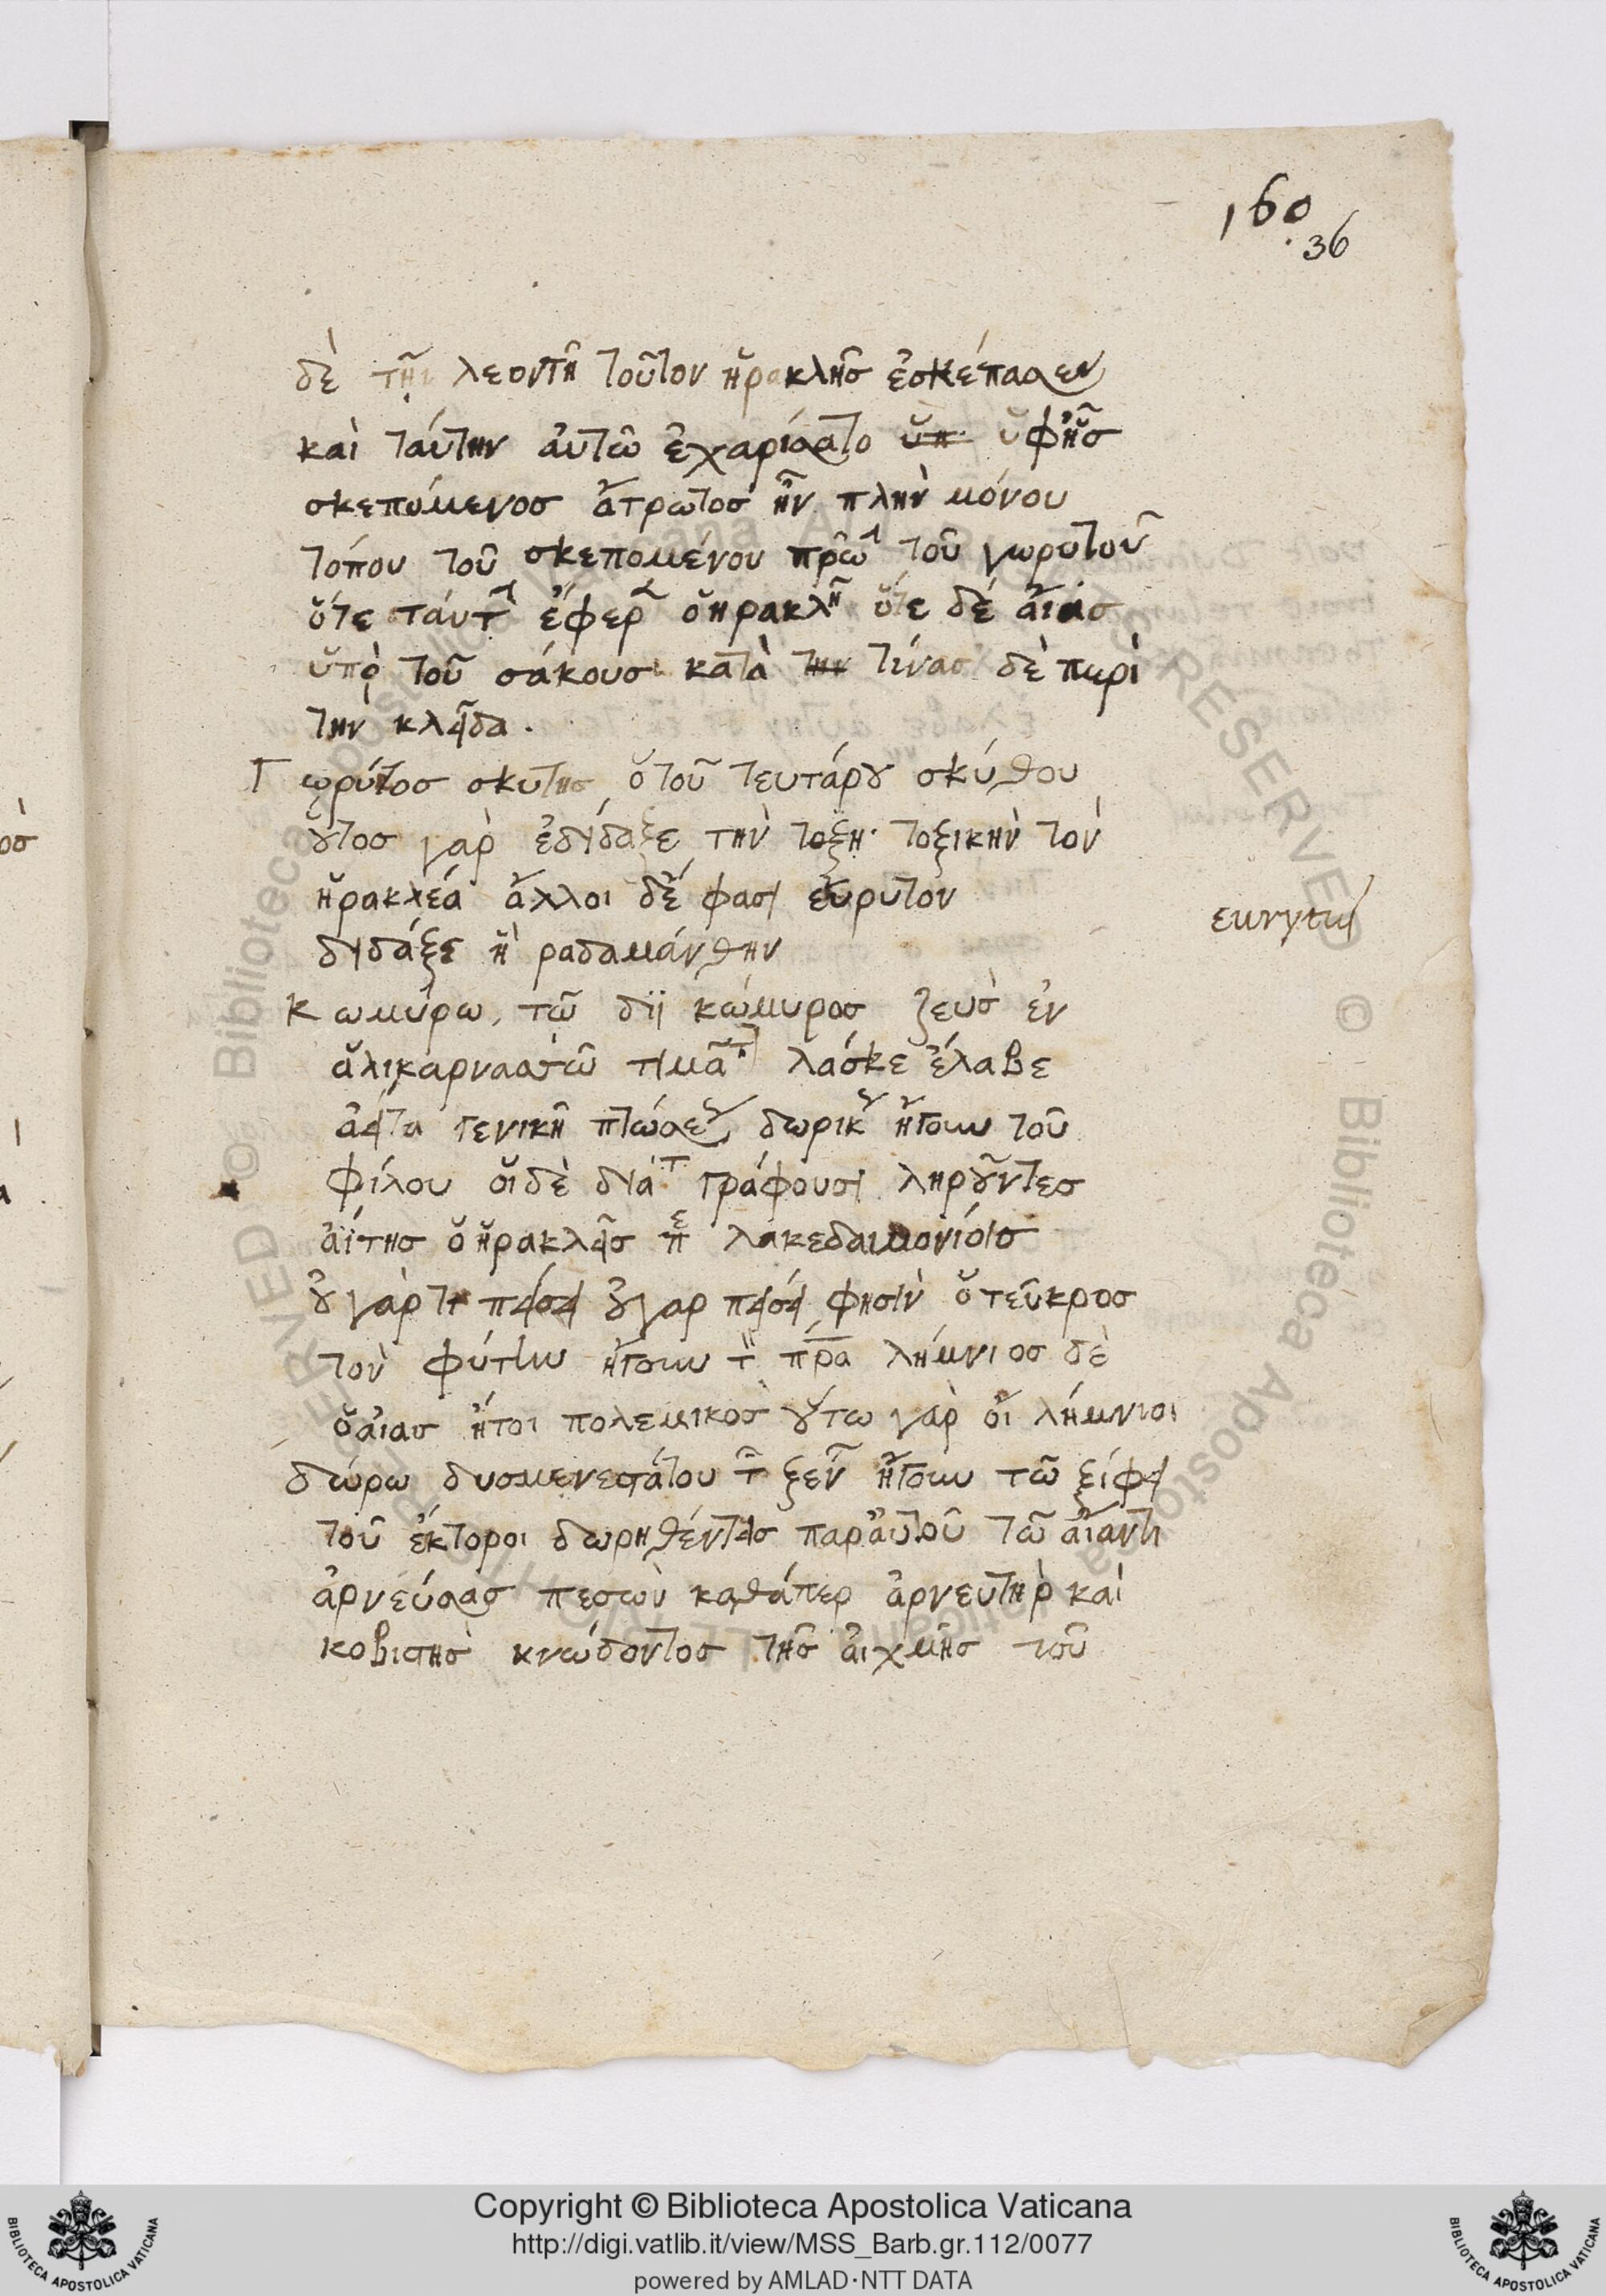 160
36
δὲ τῆν λεοντῆ τοῦτον ἡρακλῆσ ἐσκέπασεν
καὶ ταύτην ἀυτῶ ἐχαρίσατο ὑπ ὑφ' ἧσ
σκεπόμενοσ ἄτρωτοσ ἦν πλὴν μόνου
τόπου τοῦ σκεπομένου τοῦ γωρυτοῦ
ὅτε ἔφερ ὁ ἡρακλῆ ὅτε δέ ἄιασ
ὑπὸ τοῦ σάκουσ κατὰ την τίνασ δὲ περὶ
την κλεῖδα .
Γωρύτοσ σκυτησ ὁ τοῦ τευτάρου σκύθου
οὗτοσ γαρ ἐδίδαξε τὴν τοξη τοξικὴν τὸν
ἡρακλέα ἄλλοι δέ φασι εὔρυτον
διδάξε ἢ ραδαμάνθην
ευνγτω
Κωμύρω, τῶ διῒ κώμυροσ ζευσ ἐν
ἁλικαρνασσῶ τιμᾶτ λάσκε ἔλαβε
ἀείτα γενικῆ πτώσει δωρικ ἤγουν τοῦ
φίλου οἱ δὲ διὰ τ γράφουσι ληροῦντεσ
ἀΐτησ ὁ ἡρακλεῖσ π λακεδαιμονίοισ
οὐ γάρ τι πείσει οὐ γαρ πείσει φησὶν ὁ τεῦκροσ
τὸν φύτλιν ἤγουν τ πρα λήμνιοσ δὲ
ὁ ἄιασ ἤτοι πολεμικὸσ οὕτω γὰρ οἱ λήμνιοι
δώρω δυσμενεστάτου τ ξεν ἤγουν τῶ ξίφει
τοῦ ἕκτοροι δωρηθέντεισ παρ' ἀυτοῦ τῶ ἄιαντι
ἀρνεύσασ πεσὼν καθάπερ ἀρνευτὴρ καὶ
κοβιστησ κνώδοντοσ τῆσ ἀιχμῆσ τοῦ
Copyright © Biblioteca Apostolica Vaticana
http://digi.vatlib.it/view/MSS_Barb.gr.112/0077
powered by AMLAD·NTT DATA